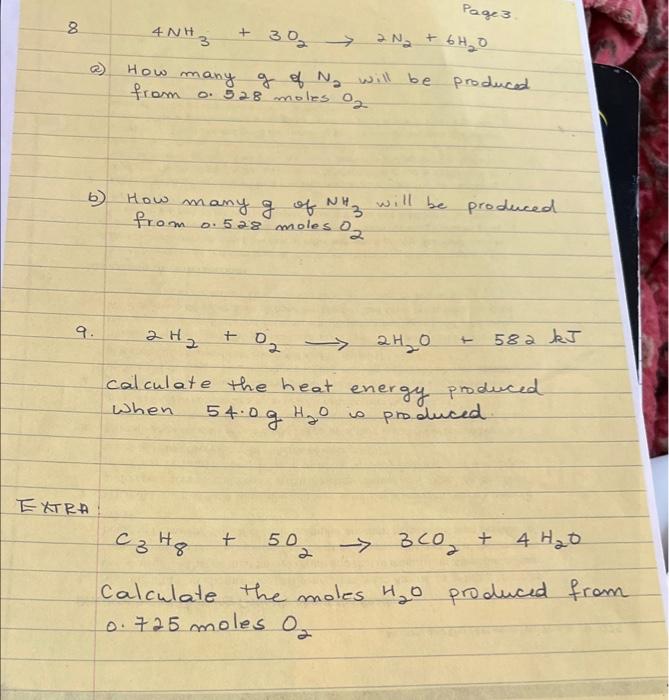 Page 3.
8 4NH₃ + 3O₂ → 2N₂ + 6H₂O
a) How many g of N₂ will be produced
from 0.528 moles O₂
b) How many g of NH₃ will be produced
from 0.528 moles O₂
9. 2H₂ + O₂ → 2H₂O + 582 kJ
calculate the heat energy produced
when 54.0g H₂O is produced.
EXTRA
C₃H₈ + 5O₂ → 3CO₂ + 4H₂O
Calculate the moles H₂O produced from
0.725 moles O₂